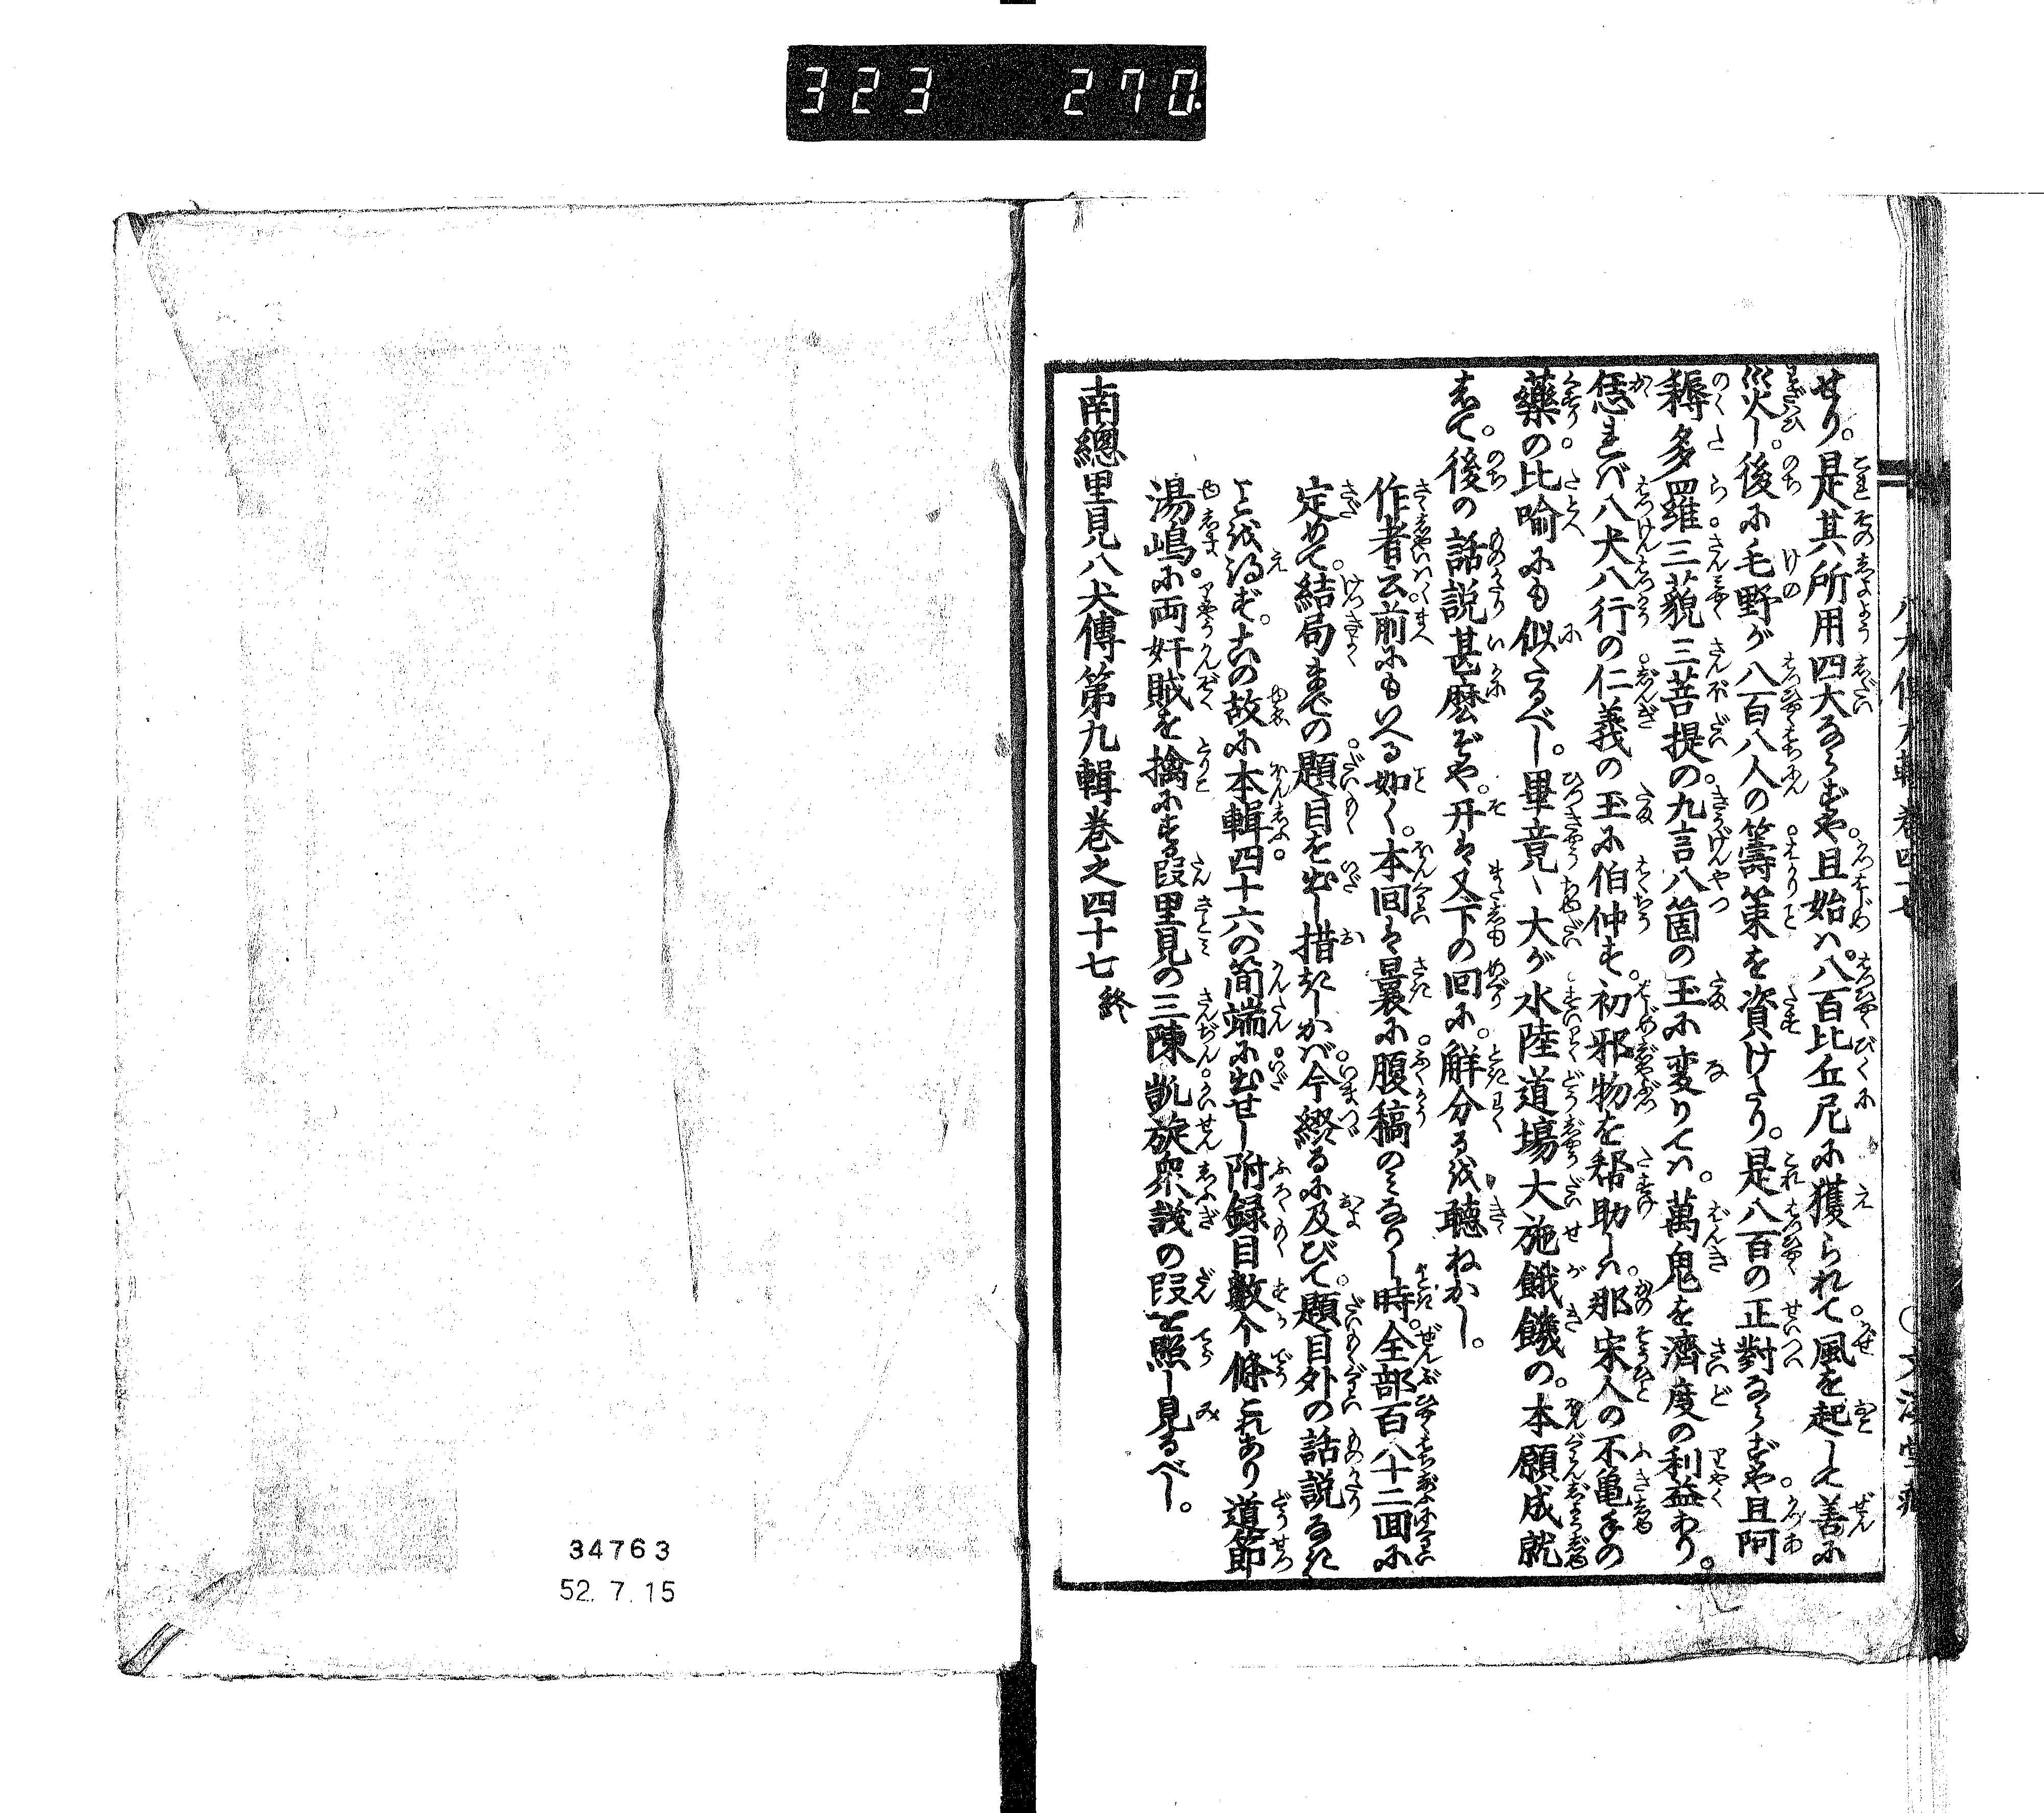 323 270.
せり。是其所用四大ならずや。且始ハ八百比丘尼に獲られて風を起して善に
災し。後に毛野が八百八人の籌策を資けたり。是八百の正對ならずや。且阿
耨多羅三藐三菩提の九言八箇の玉に変りてハ。萬鬼を濟度の利益あり。
恁れバ八犬八行の仁義の玉に伯仲す。初邪物を幇助しハ。那宋人の不亀手の
藥の比喩にも似たるべし。畢竟丶大が水陸道場大施餓饑の。本願成就
して。後の話説甚麼ぞや。开ハ又下の回に。觧分るを聽ねかし。
作者云前にもいへる如く。本回ハ曩に腹稿のミなりし時。全部百八十二回に
定めて。結局までの題目を出し措きしかバ。今綴るに及びて。題目外の話説なき
ことを得ず。この故に本輯四十六の簡端に出せし附録目數个條これあり道節
湯嶋に両奸賊を擒にする段里見の三陳凱旋衆議の段を照し見るべし。
南總里見八犬傳第九輯巻之四十七 終
34763
52. 7. 15